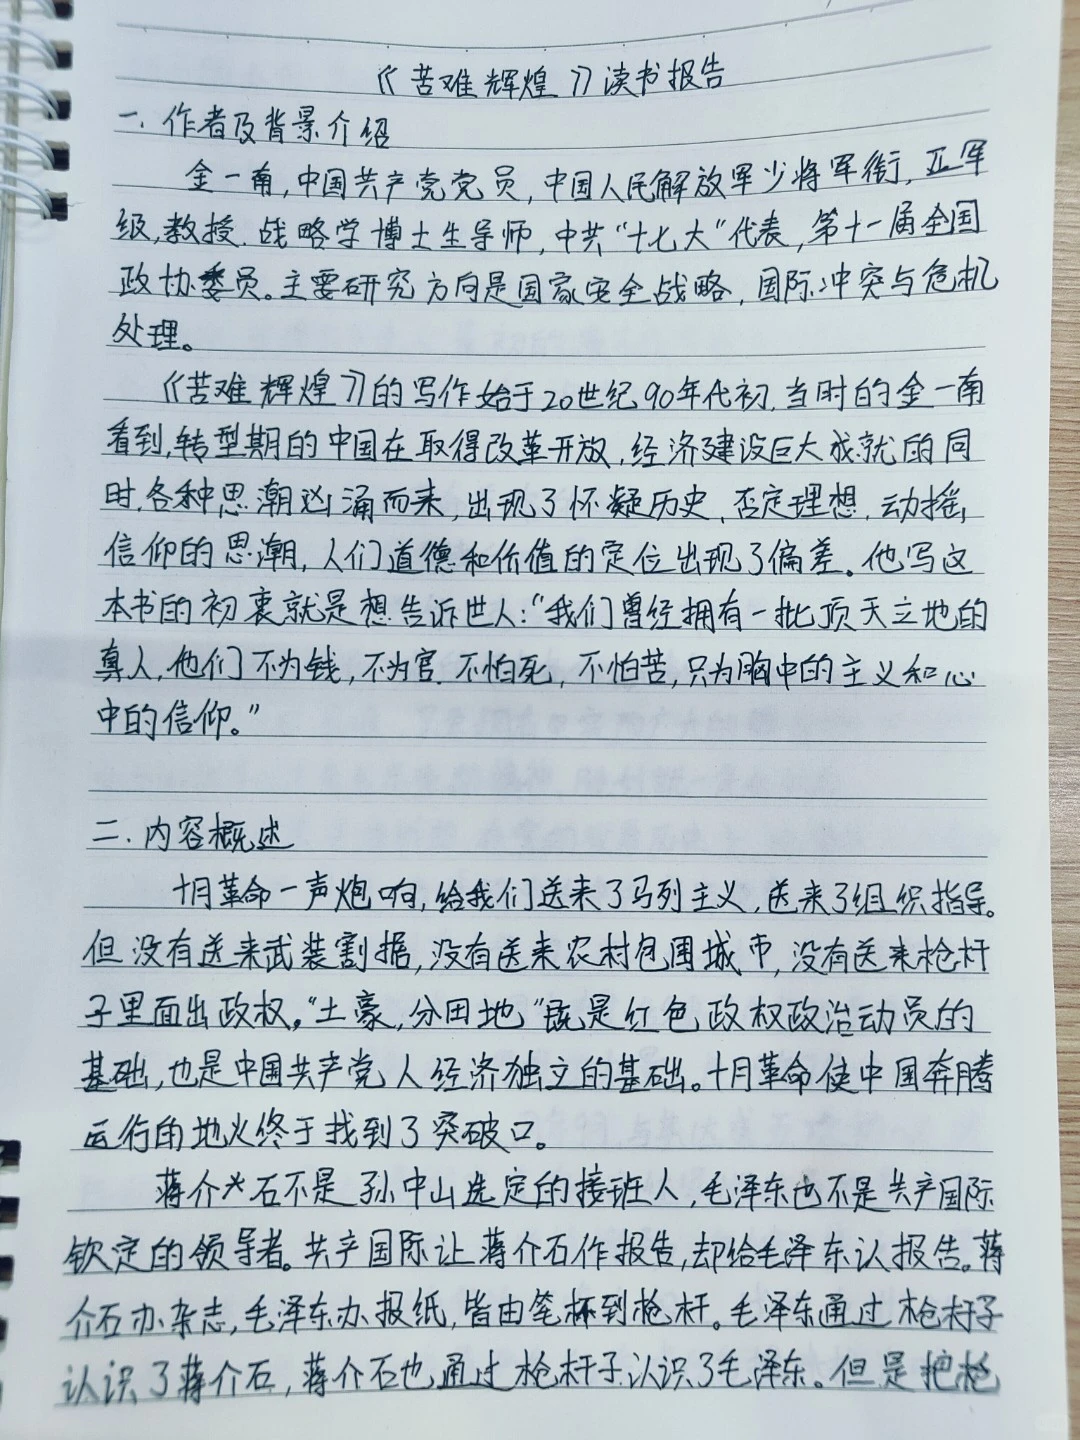 《苦难辉煌》读书报告
一.作者及背景介绍
金一南,中国共产党党员,中国人民解放军少将军衔,正军
级,教授.战略学博士生导师,中共“十七大”代表,第十一届全国
政协委员。主要研究方向是国家安全战略,国际冲突与危机
处理。
《苦难辉煌》的写作始于20世纪90年代初,当时的金一南
看到,转型期的中国在取得改革开放,经济建设巨大成就的同
时,各种思潮汹涌而来,出现了怀疑历史、否定理想、动摇
信仰的思潮,人们道德和价值的定位出现了偏差。他写这
本书的初衷就是想告诉世人:“我们曾经拥有一批顶天立地的
真人,他们不为钱,不为官.不怕死,不怕苦,只为胸中的主义和心
中的信仰。”
二.内容概述
十月革命一声炮响,给我们送来了马列主义,送来了组织指导。
但没有送来武装割据,没有送来农村包围城市,没有送来枪杆
子里面出政权。“土豪,分田地”既是红色政权政治动员的
基础,也是中国共产党人经济独立的基础。十月革命使中国奔腾
运行的地火终于找到了突破口。
蒋介石不是孙中山选定的接班人,毛泽东也不是共产国际
钦定的领导者。共产国际让蒋介石作报告,却给毛泽东认报告。蒋
介石办杂志,毛泽东办报纸,皆由笔杆到枪杆。毛泽东通过枪杆子
认识了蒋介石,蒋介石也通过枪杆子认识了毛泽东。但是把枪